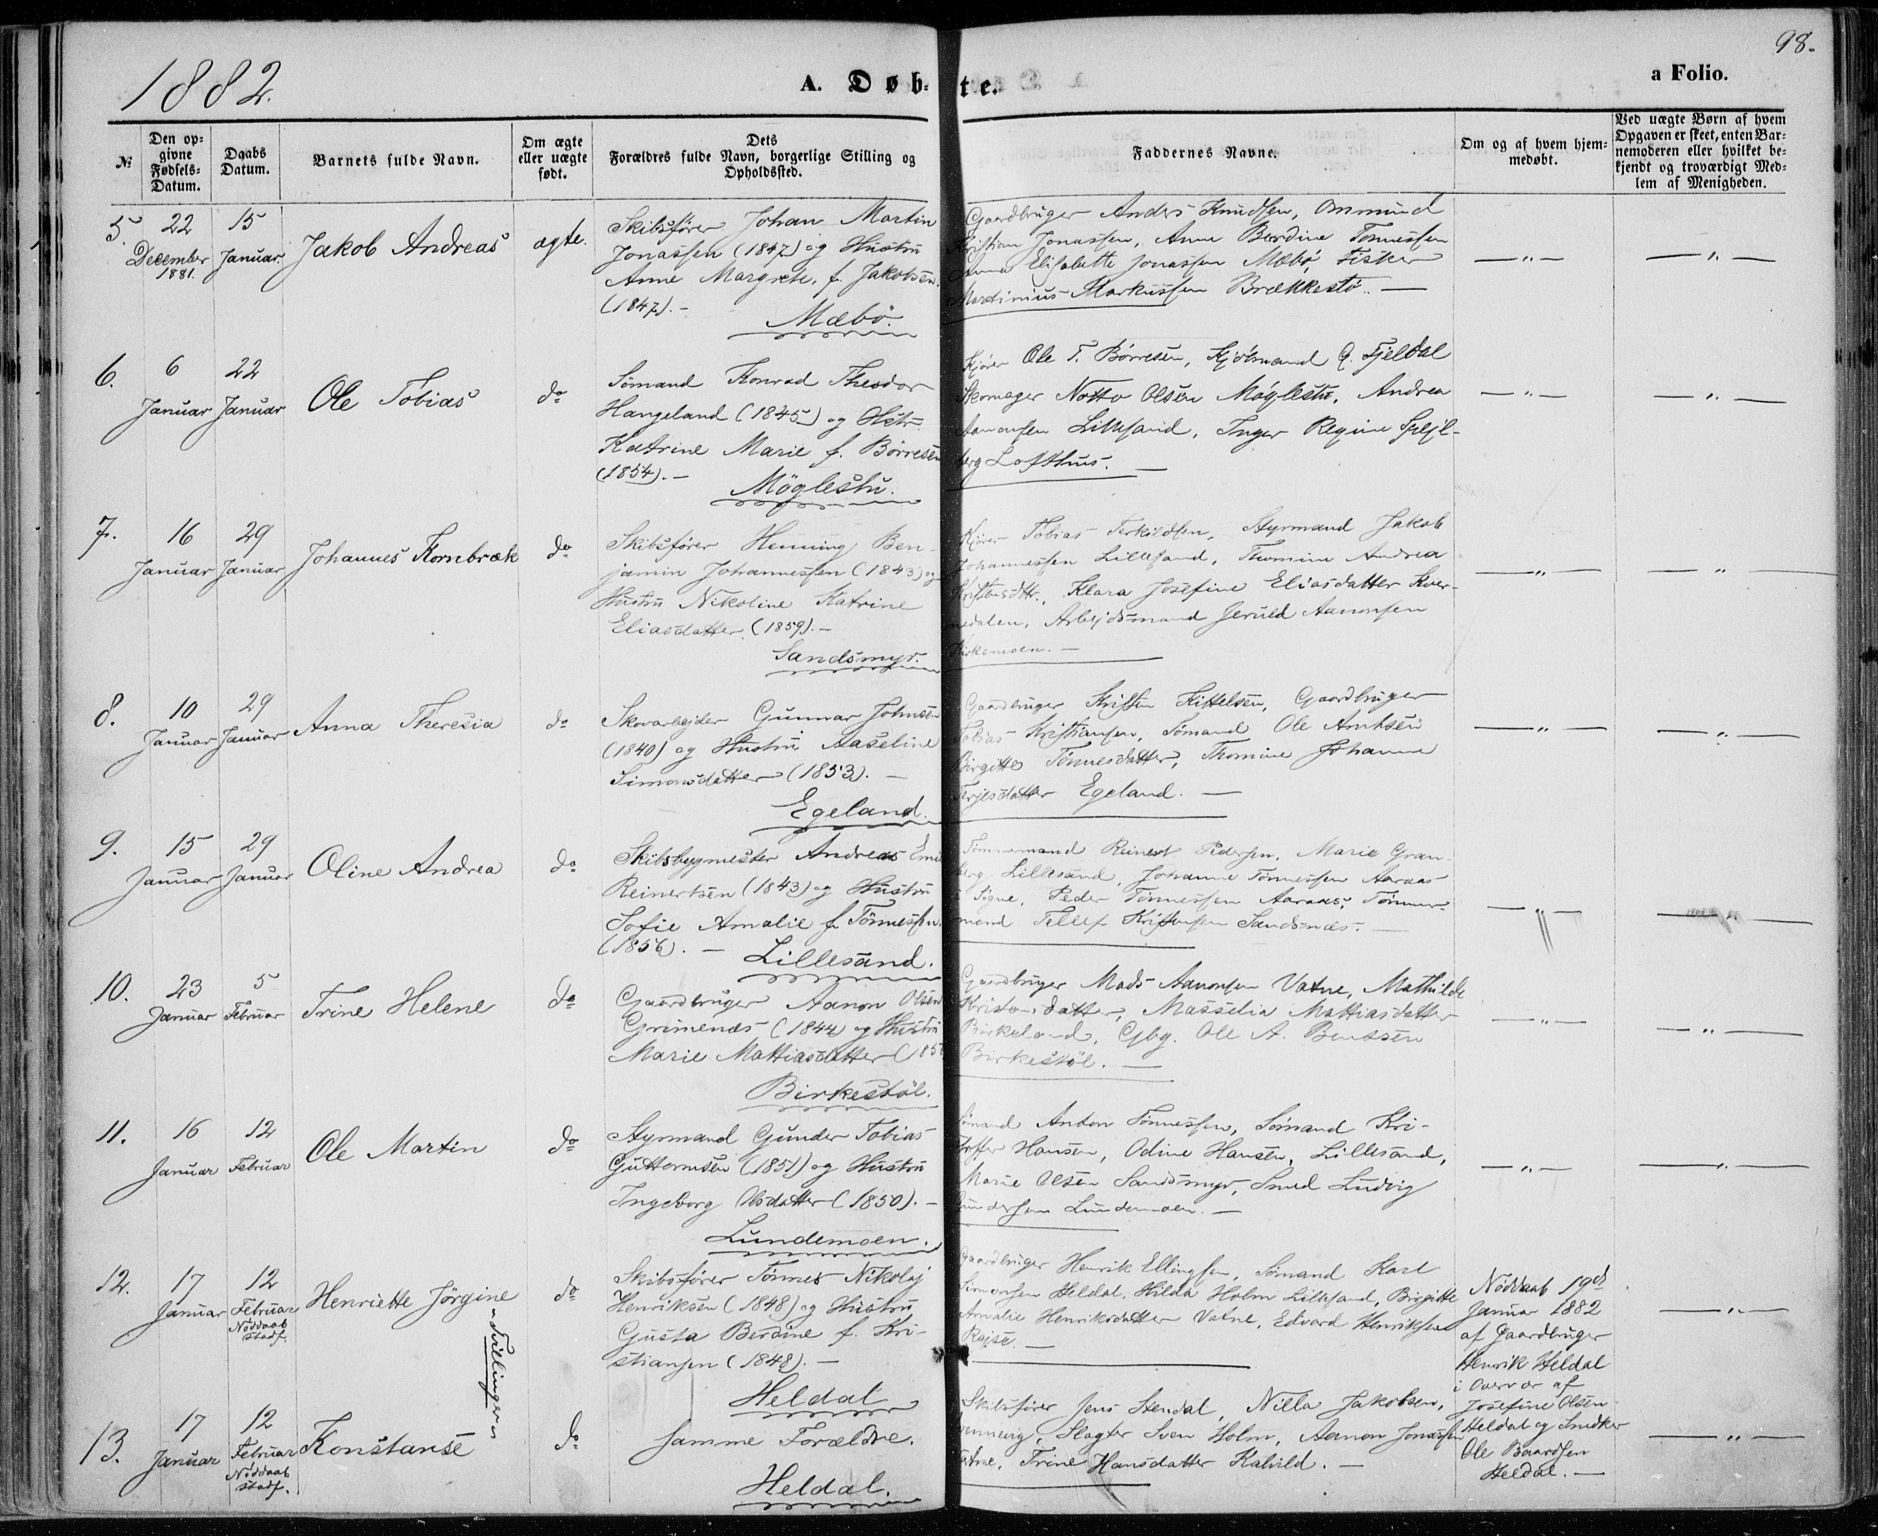 1882.
A. Døb-
te.
98.
a Folio.
№
Den op-
givne
Fødsels-
Datum.
Daabs
Datum.
Barnets fulde Navn.
Om ægte
eller uægte
født.
Dets
Forældres fulde Navn, borgerlige Stilling og
Opholdssted.
Faddernes Navne.
Om og af hvem hjem-
medøbt.
Ved uægte Børn af hvem
Opgaven er skeet, enten Bar-
nemoderen eller hvilket be-
kjendt og troværdigt Med-
lem af Menigheden.
5.
22
December
1881.
15
Januar
Jakob Andreas
ægte.
Skibsfører Johan Martin
Jonassen (1847) og Hustru
Anne Margrete, f. Jakobsen.
(1847). -
Mæbø.
Gaardbruger Anders Knudsen, Ommund
Kristian Jonassen, Anne Berdine Tønnessen
Anna Elisabette Jonassen Mæbø, Fisker
Martinius Markussen Brækkestø. -
— „ —
— „ —
6.
6
Januar
22
Januar
Ole Tobias
do
Sømand Konrad Theodor
Hangeland (1845) og Hstr.
Katrine Marie f. Børresen
(1854). -
Møglestu.
Kjører Ole T. Børresen, Kjøbmand G. Fjeldal
Skomager Notto Olsen Møglestu, Andrea
Aanonsen Lillesand, Inger Regine Spejl-
berg Lofthus. —
— „ —
— „ —
7.
16
Januar
29
Januar
Johannes Kornbræk
do
Skibsfører Henning Ben-
jamin Johannessen (1843) og
Hustru Nikoline Katrine
Eliasdatter (1859). -
Sandsmyr.
Kjører Tobias Terkildsen, Styrmand Jakob
Johannessen Lillesand, Thomine Andrea
Klara Josefine Eliasdatter Kver-
nedalen, Arbejdsmand Jeruld Aanonsen
Kirkemoen. —
— „ —
— „ —
8.
10
Januar
29
Januar
Anna Theresia
do
Skovarbejder Gunnar Johnsen
(1840) og Hustru Aaseline
Simonsdatter (1853). —
Egeland.
Gaardbruger Kristen Kittelsen, Gaardbruger
Tobias Kristiansen, Sømand Ole Arntsen
Birgitte Tønnesdatter, Thomine Johanne
Terjesdatter Egeland. —
— „ —
— „ —
9.
15
Januar
29
Januar
Oline Andrea
do
Skibsbygmester Andreas Emil
Reinertsen (1843) og Hustru
Sofie Amalie f. Tønnessen.
(1856). —
Lillesand.
Tømmermand Reinert Pedersen, Marie Gran-
berg Lillesand, Johanne Tønnessen Aaraas
i Søgne, Peder Tønnessen Aaraas, Tømmer-
mand Tellef Kristensen Sandsnæs. —
— „ —
— „ —
10.
23
Januar
5
Februar
Trine Helene
do
Gaardbruger Aanon Olsen
Grimenæs (1844 og Hustru
Marie Mattiasdatter (185
Birkestøl.
Gaardbruger Mads Aanonsen Vatne, Mathilde
Kristensdatter, Masselia Mattiasdatter
Birkeland, Gbg. Ole A. Bentsen
Birkestøl. —
— „ —
— „ —
11.
16
Januar
12
Februar
Ole Martin
do
Styrmand Gunder Tobias
Guttormsen (1851) og Hustru
Ingeborg Olsdatter (1850). -
Lundemoen.
Sømand Anton Tønnessen, Sømand Kri-
stoffer Hansen, Odine Hansen, Lillesand,
Marie Olsen Sandsmyr, Smed Ludvig
Gundersen Lundemoen. —
— „ —
— „ —
12.
17
Januar
12
Februar
Nøddaab
stadf.
Henriette Jørgine
Tvillinger
do
Skibsfører Tønnes Nikolaj
Henriksen (1848) og Hustru
Gusta Berdine f. Kri-
stiansen (1848). —
Heldal
Gaardbruger Henrik Ellingsen, Sømand Karl
Simonsen Heldal, Hilda Holm Lillesand, Birgitte
Amalie Henriksdatter Vatne, Edvard Henriksen
Rejse. —
Nøddaab 19de
Januar 1882
af Gaardbruger
Henrik Heldal
i Overvær af
Josefine Olsen
Heldal og Snedker
Ole Baardsen
Heldal. —
— „ —
13.
17
Januar
12
Februar
Nøddaab
stadf.
Konstanse
do
Samme Forældre.
Heldal.
Skibsfører Jens Stendal, Nilla Jakobsen,
Slagter Sven Holm, Aanon Jonassen
Vatne, Trine Hansdatter Kalvild. —
— „ —